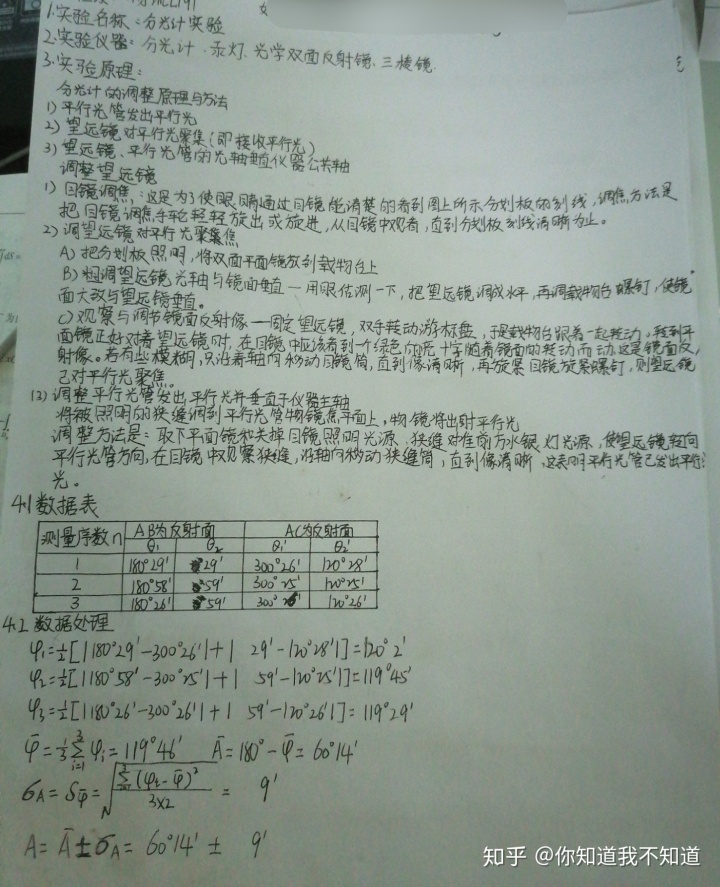 1.实验名称:分光计实验
2.实验仪器:分光计.汞灯.光学双面反射镜.三棱镜.
3.实验原理:
分光计的调整原理与方法
1)平行光管发出平行光
2)望远镜对平行光聚集(即接收平行光)
3)望远镜、平行光管的光轴垂直仪器公共轴
调整望远镜
1)目镜调焦:这是为了使眼睛通过目镜能清楚的看到图上所示分划板的刻线,调焦方法是
把目镜调焦手轮轻轻旋出或旋进,从目镜中观看,直到分划板刻线清晰为止。
2)调望远镜对平行光聚集焦
A)把分划板照明,将双面平面镜放到载物台上
B)粗调望远镜光轴与镜面垂直—用眼估测一下,把望远镜调成水平,再调载物台螺钉,使镜
面大致与望远镜垂直。
C)观察与调节镜面反射像—固定望远镜,双手转动游标盘,于是载物台跟着一起转动。转到平
面镜正好对着望远镜时,在目镜中应该看到一个绿色的亮十字随着镜面的转动而动,这是镜面反
射像。若有些模糊,只沿着轴向移动目镜筒,直到像清晰,再旋紧目镜旋紧螺钉,则望远镜
已对平行光聚焦。
(3)调整平行光管发出平行光并垂直于仪器主轴
将被照明的狭缝调到平行光管物镜焦平面上,物镜将出射平行光
调整方法是:取下平面镜和关掉目镜照明光源,狭缝对准前方水银灯光源,使望远镜转向
平行光管方向,在目镜中观察狭缝,沿轴向移动狭缝筒,直到像清晰,这表明平行光管已发出平行
光。
4.1数据表
测量序数n AB为反射面 AC为反射面
θ1 θ2 θ1' θ2'
1 180°29' 29' 300°26' 120°28'
2 180°58' 59' 300°25' 120°25'
3 180°26' 59' 300°26' 120°26'
4.2数据处理
φ1=½[|180°29'-300°26'|+| 29'-120°28'|]=120°2'
φ2=½[|180°58'-300°25'|+| 59'-120°25'|]=119°45'
φ3=½[|180°26'-300°26'|+| 59'-120°26'|]=119°29'
φ̄=⅓∑φi=119°46' Ā=180°-φ̄=60°14'
σA=Sφ̄=√(∑(φi-φ̄)²/3×2)= 9'
A=Ā±σA=60°14' ± 9'
知乎 @你知道我不知道